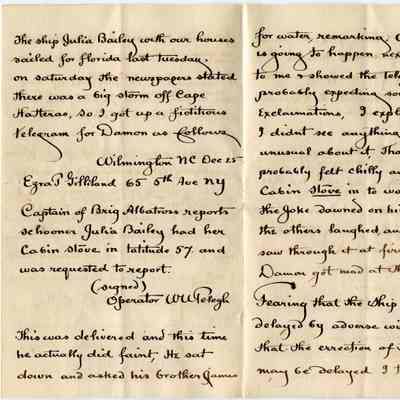 The ship Julia Bailey with our houses
sailed for florida last tuesday.
on saturday the newspapers stated
there was a big storm off Cape
Hatteras, so I got up a fictitious
telegram for Damon as follows
Wilmington NC Dec 25
Ezra T Gilliland 65 5th Ave NY
Captain of Brig Albatross reports
schooner Julia Bailey had her
Cabin stove in latitude 57. and
was requested to report.
(signed)
Operator WU Telegh
This was delivered and this time
he actually did faint, He sat
down and asked his brother James
for water remarking,
is going to happen nex
to me & showed the tele
probably expecting so
Exclaimations, I expl
I didnt see anything
unusual about it. Tha
probably felt chilly a
Cabin stove in to wa
the Joke dawned on hi
the others laughed, a
saw through it at fir
Damon got mad at th
Fearing that the Ship
delayed by adverse wi
that the errection of
may be delayed I t